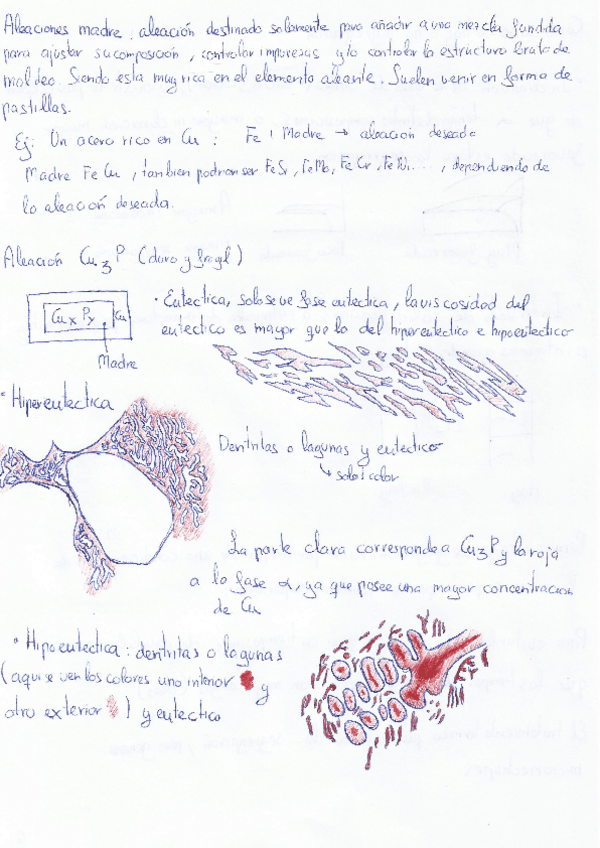 Aleaciones madre: aleación destinado solamente para añadir a una mezcla fundida
para ajustar su composición, controlar impurezas y/o controlar la estructura bruta de
moldeo. Siendo esta muy rica en el elemento aleante. Suelen venir en forma de
pastillas.
Ej: Un acero rico en Cu : Fe + Madre → aleación deseada
Madre FeCu, tambien podrian ser FeSi, FeMo, FeCr, FeNi...., dependiendo de
la aleación deseada.
Aleación Cu3P (duro y fragil)
CuxPy Cu
Madre
· Eutectica, solo se ve fase eutectica, la viscosidad del
eutectico es mayor que la del hipereutectico e hipoeutectico
· Hipereutectica
Dentritas o lagunas y eutectico
↳ solo 1 color
La parte clara corresponde a Cu3P y la roja
a la fase α, ya que posee una mayor concentracion
de Cu
· Hipoeutectica: dentritas o lagunas
(aqui se ven los colores uno interior y
otro exterior ) y eutectico